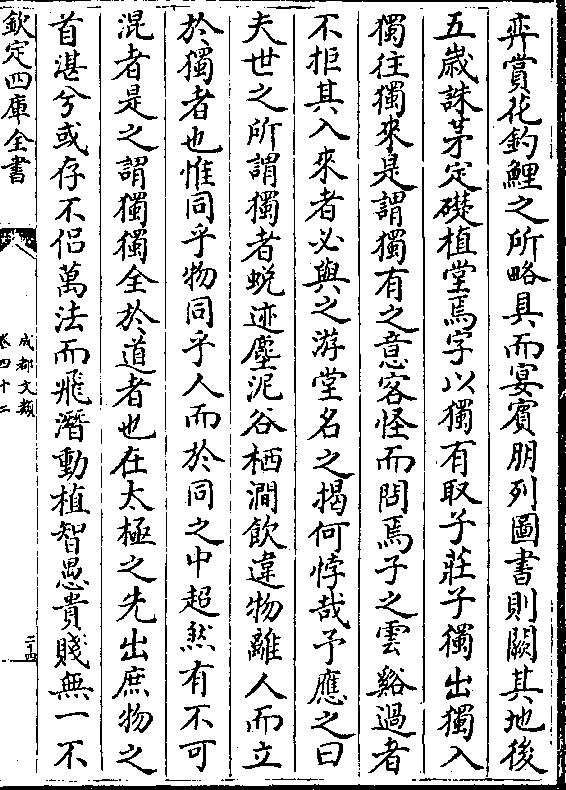 弈賞花釣鯉之所略具而宴賓朋列圖書則闕其地後
五歲誅茅定礎植堂焉字以獨有取子莊子獨出獨入
獨往獨來是謂獨有之意客怪而問焉子之雲谿過者
不拒其入來者必與之游堂名之揭何悖哉予應之曰
夫世之所謂獨者蛻迹塵泥谷栖澗飲違物離人而立
於獨者也惟同乎物同乎人而於同之中超然有不可
混者是之謂獨獨全於道者也在太極之先出庶物之
首湛兮或存不侣萬法而飛潛動植智愚貴賤無一不
欽定四庫全書
成都文類
卷四十二
二十四